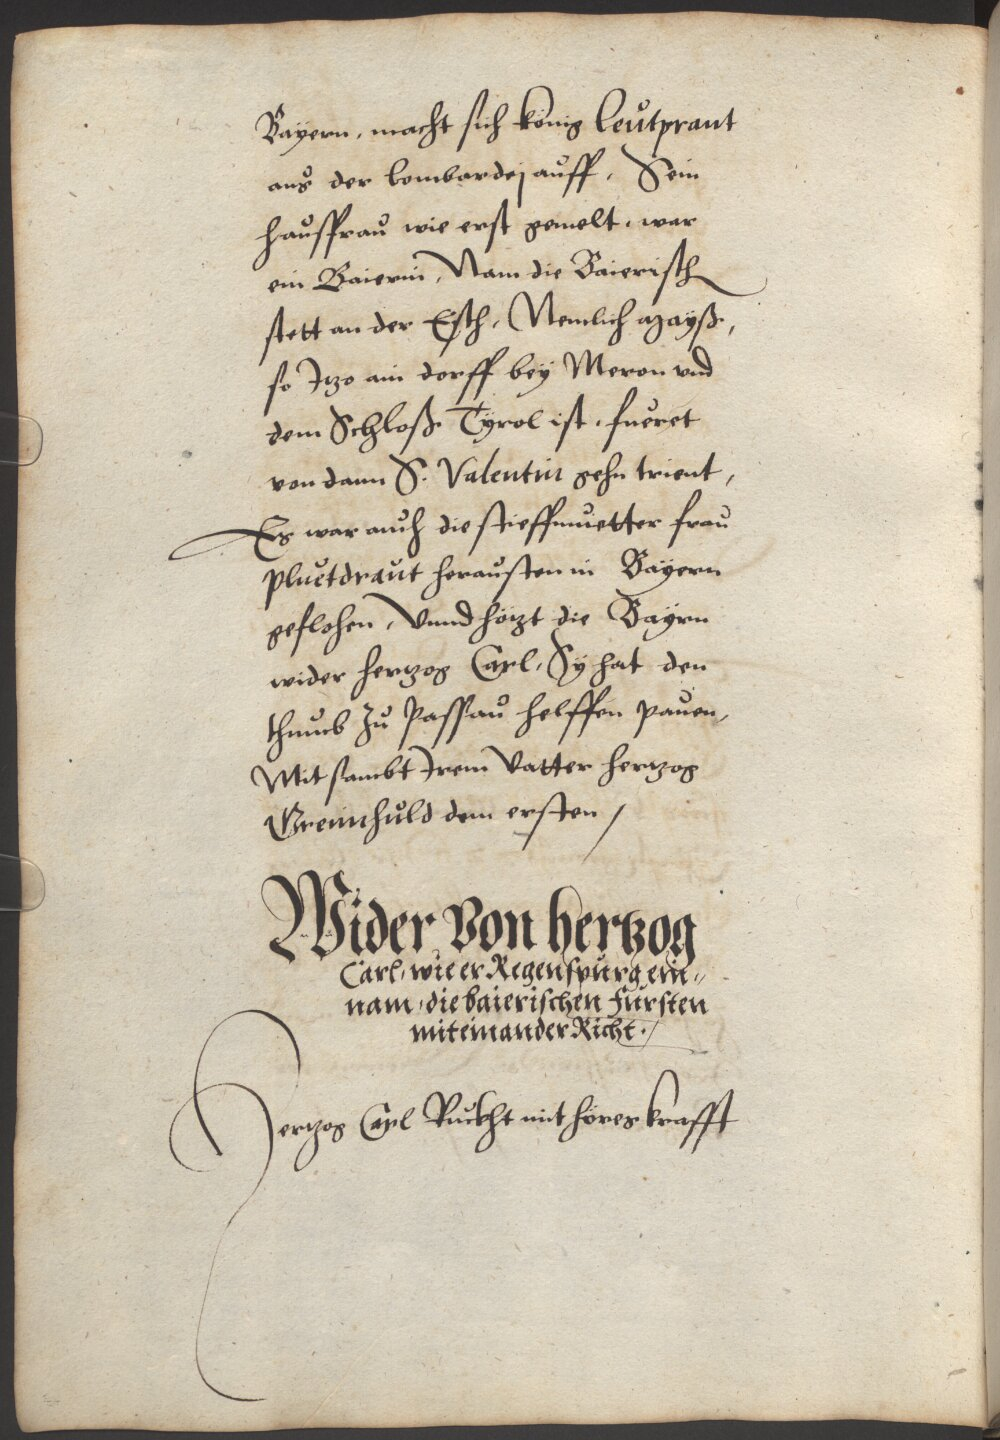 Bayern, macht sich könig Leŭtprant
aus der lombardej auff, Sein
hausfraŭ wie erst gemelt, war
ein Baierin, Nam die Baierisch
stett an der Etsch, Nemlich Mayß,
so Itzo ain dorff bey Meron vnd
dem Schloß Tyrol ist, fueret
von dann S. Valentin gehn trient,
Es war auch die stieffmuetter fraŭ
Pluetdraŭt herausten in Bayern
geflohen, Vnnd hötzt die Bayrn
wider hertzog Carl, Sy hat den
thumb Zŭ Passaŭ helffen pauen,
Mit sambt Irem Vatter hertzog
Greimhŭld dem ersten /
Wider Von hertzog
Carl, wie er Regenspŭrg ein-
nam, die baierischen Fürsten
miteinander Richt. /
Hertzog Carl Rŭckht mit höres krafft